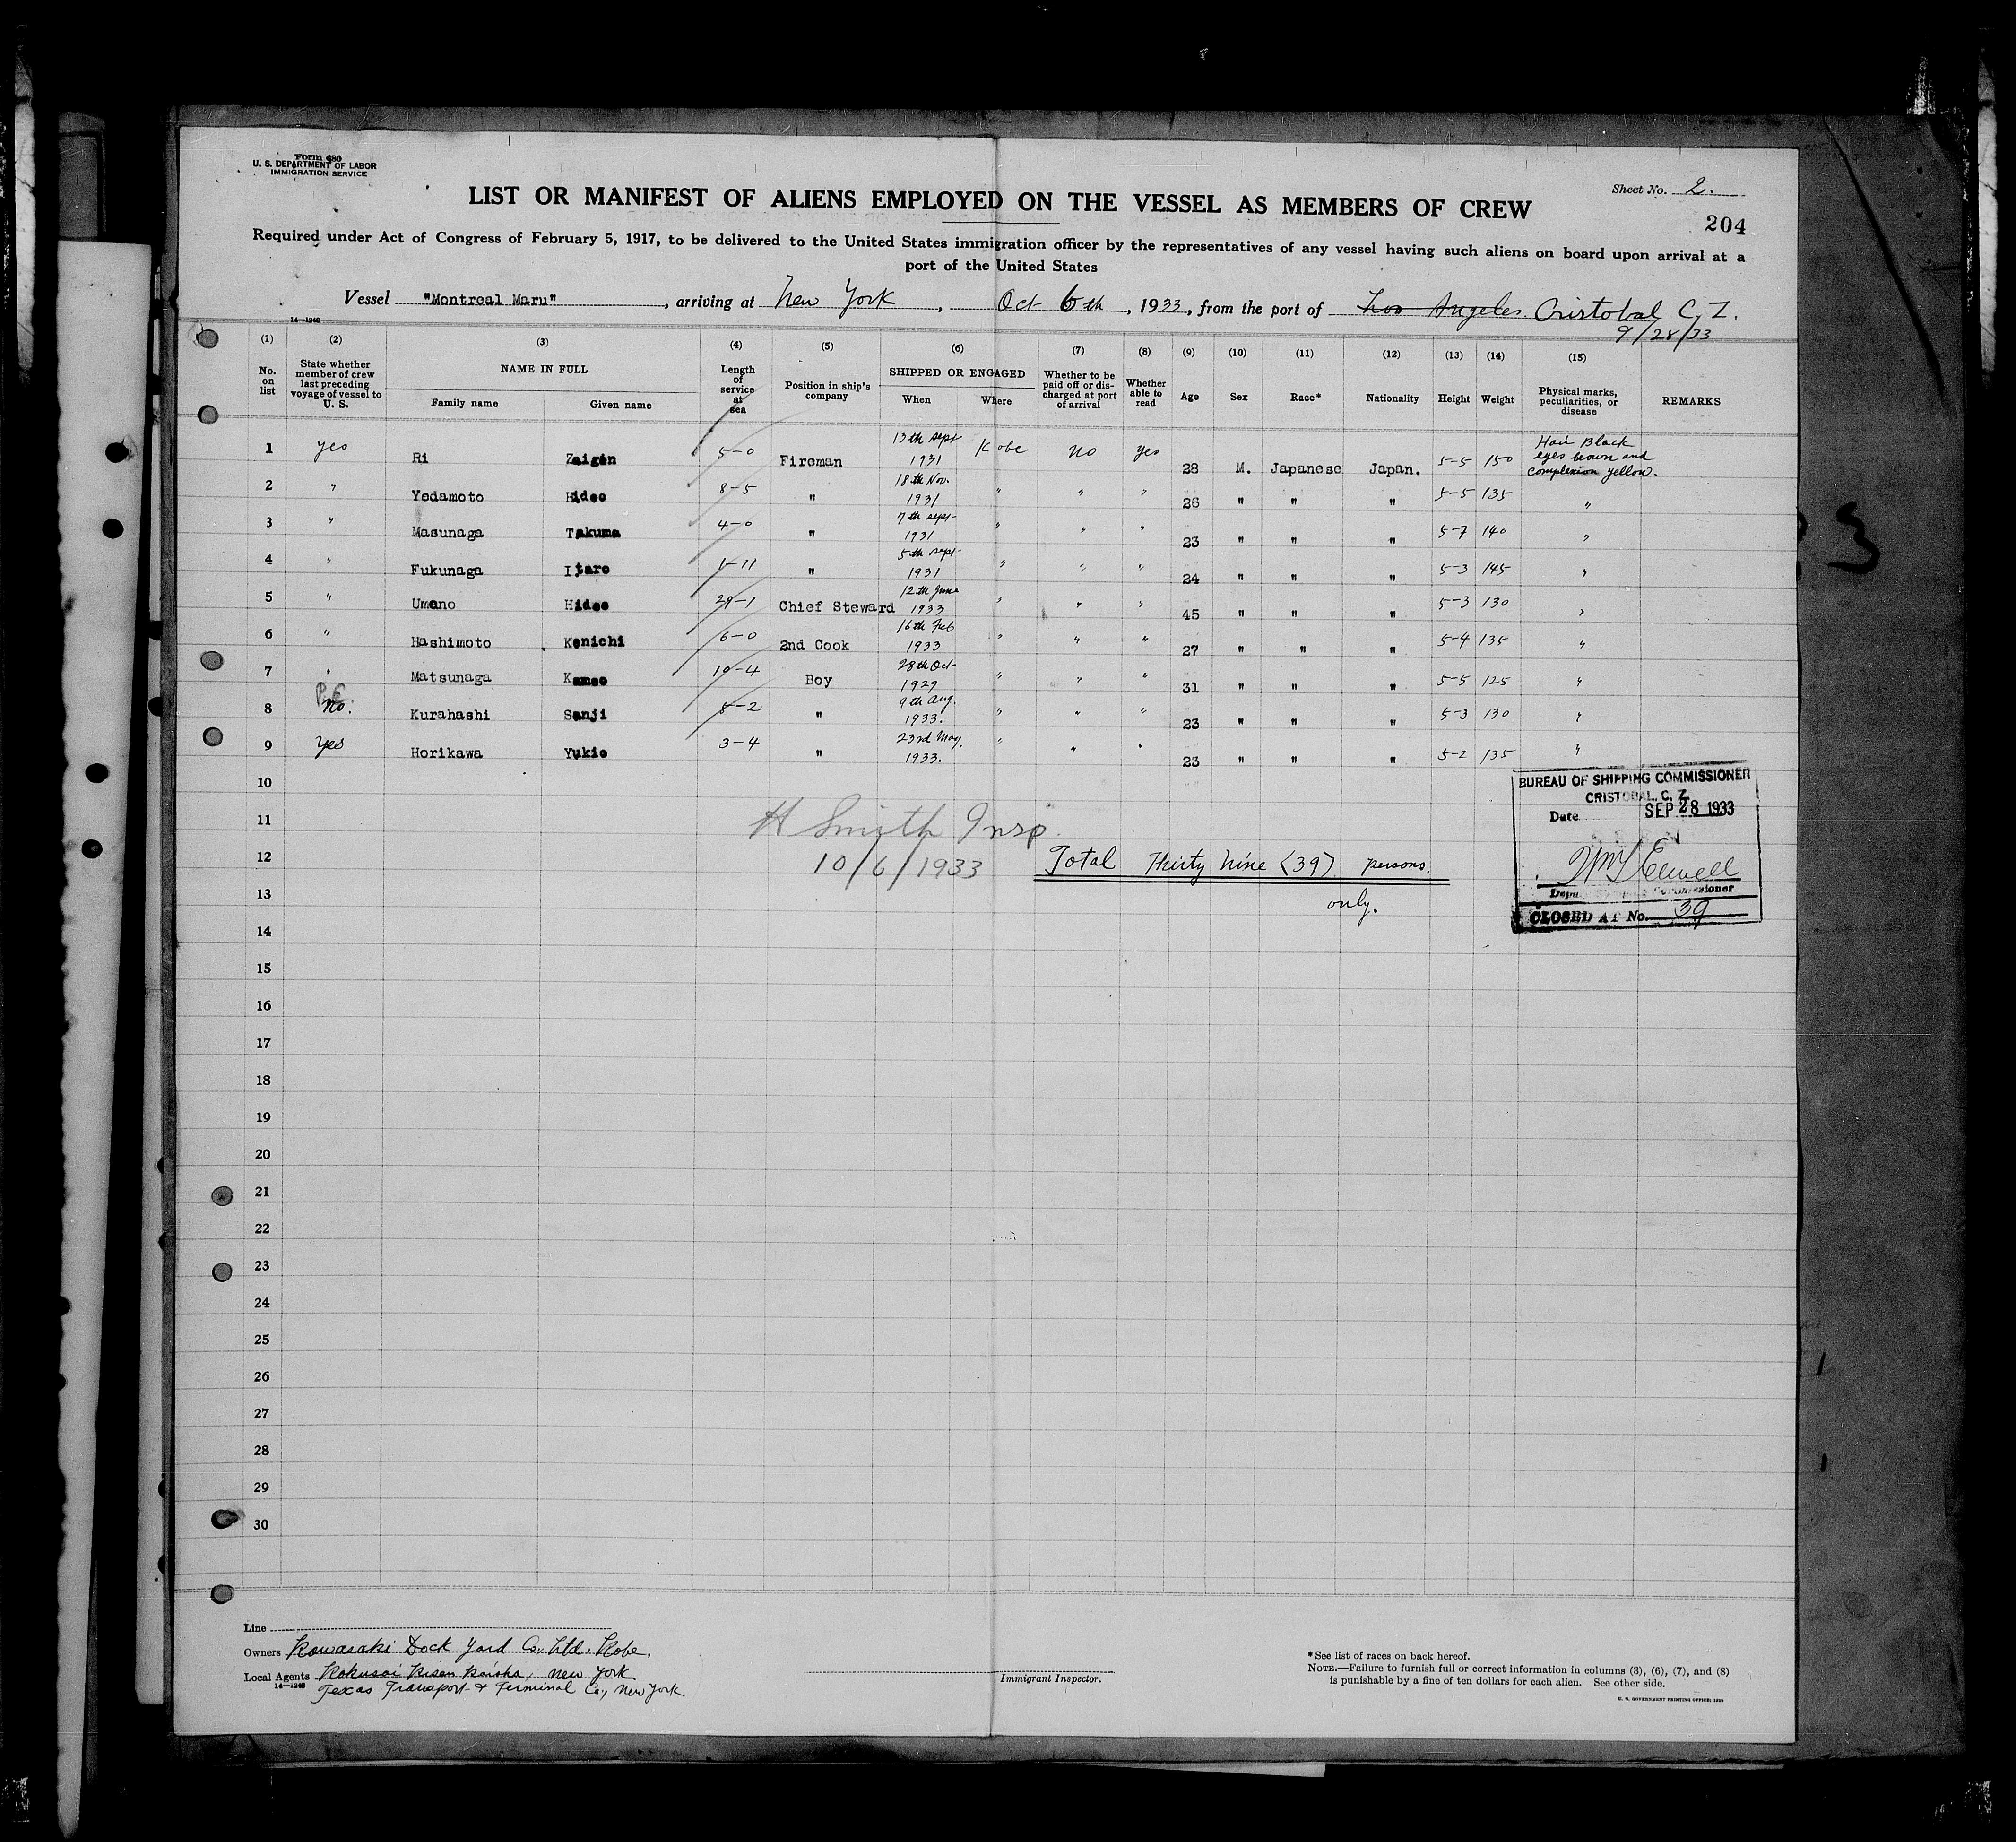 Form 680
U. S. DEPARTMENT OF LABOR
IMMIGRATION SERVICE
Sheet No. 2.
LIST OR MANIFEST OF ALIENS EMPLOYED ON THE VESSEL AS MEMBERS OF CREW
204
Required under Act of Congress of February 5, 1917, to be delivered to the United States immigration officer by the representatives of any vessel having such aliens on board upon arrival at a
port of the United States
Vessel "Montreal Maru", arriving at New York, Oct 6th, 1933, from the port of Los Angeles Cristobal C. Z.
9/28/33
14—1240
(1) (2) (3) (4) (5) (6) (7) (8) (9) (10) (11) (12) (13) (14) (15)
No. on list | State whether member of crew last preceding voyage of vessel to U. S. | NAME IN FULL Family name Given name | Length of service at sea | Position in ship's company | SHIPPED OR ENGAGED When Where | Whether to be paid off or discharged at port of arrival | Whether able to read | Age | Sex | Race* | Nationality | Height | Weight | Physical marks, peculiarities, or disease | REMARKS
1 yes Ri Zaigen 5-0 Fireman 13th Sept 1931 Kobe No yes 28 M. Japanese Japan. 5-5 150 Hair Black eyes brown and complexion yellow.
2 " Yedamoto Hideo 8-5 " 18th Nov. 1931 " " " 26 " " " 5-5 135 "
3 " Masunaga Takuma 4-0 " 7th sept- 1931 " " " 23 " " " 5-7 140 "
4 " Fukunaga Itaro 1-11 " 5th sept- 1931 " " " 24 " " " 5-3 145 "
5 " Umeno Hideo 29-1 Chief Steward 12th June 1933 " " " 45 " " " 5-3 130 "
6 " Hashimoto Kenichi 6-0 2nd Cook 16th Feb 1933 " " " 27 " " " 5-4 135 "
7 " Matsunaga Kameo 10-4 Boy 28th Oct- 1929 " " " 31 " " " 5-5 125 "
8 No. Kurahashi Sanji 5-2 " 9th Aug. 1933. " " " 23 " " " 5-3 130 "
9 Yes Horikawa Yukio 3-4 " 23rd May. 1933. " " " 23 " " " 5-2 135 "
10
11
12
13
14
15
16
17
18
19
20
21
22
23
24
25
26
27
28
29
30
H Smith Insp.
10/6/1933
Total Thirty Nine (39) persons.
only.
BUREAU OF SHIPPING COMMISSIONER
CRISTOBAL, C. Z.
Date SEP 28 1933
Commissioner
CLOSED AT No. 39
Line
Owners Kawasaki Dock Yard Co., Ltd. Kobe.
Local Agents Kokusai Kisen Kaisha, New York
14—1240
Texas Transport & Terminal Co., New York
Immigrant Inspector.
* See list of races on back hereof.
NOTE.—Failure to furnish full or correct information in columns (3), (6), (7), and (8)
is punishable by a fine of ten dollars for each alien. See other side.
U. S. GOVERNMENT PRINTING OFFICE: